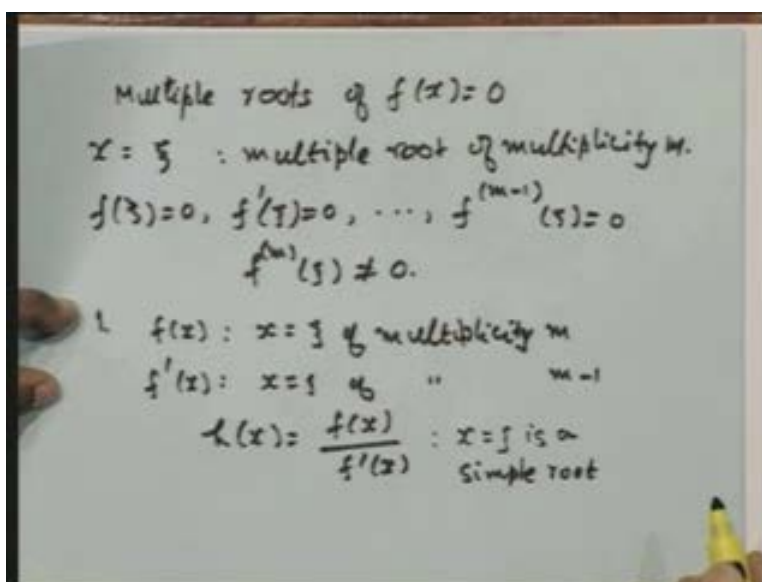 Multiple roots of f(x)=0
x = ξ : multiple root of multiplicity m.
f(ξ)=0, f'(ξ)=0, ..., f^(m-1)(ξ)=0
f^(m)(ξ) ≠ 0.
1 f(x): x=ξ of multiplicity m
f'(x): x=ξ of " m-1
h(x)= f(x)/f'(x) : x=ξ is a
simple root